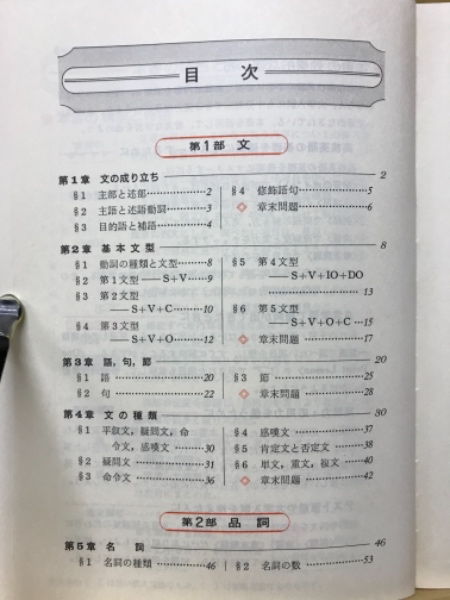 目 次
第1部 文
第1章 文の成り立ち 2
§1 主部と述部 2
§2 主語と述語動詞 3
§3 目的語と補語 4
§4 修飾語句 5
◇ 章末問題 6
第2章 基本文型 8
§1 動詞の種類と文型 8
§2 第1文型――S+V 9
§3 第2文型
――S+V+C 10
§4 第3文型
――S+V+O 12
§5 第4文型
――S+V+IO+DO
13
§6 第5文型
――S+V+O+C 15
◇ 章末問題 17
第3章 語,句,節 20
§1 語 20
§2 句 22
§3 節 25
◇ 章末問題 28
第4章 文の種類 30
§1 平叙文,疑問文,命
令文,感嘆文 30
§2 疑問文 31
§3 命令文 36
§4 感嘆文 37
§5 肯定文と否定文 38
§6 単文,重文,複文 40
◇ 章末問題 42
第2部 品詞
第5章 名詞 46
§1 名詞の種類 46
§2 名詞の数 53